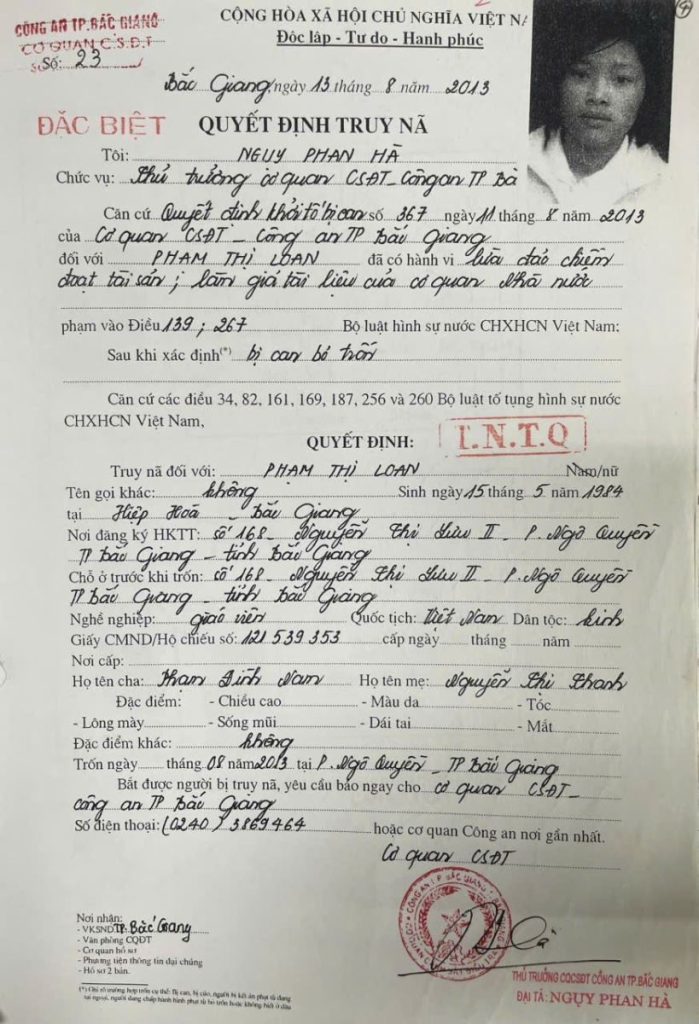 CÔNG AN TP.BẮC GIANG
CƠ QUAN C.S.Đ.T
Số: 23
CỘNG HÒA XÃ HỘI CHỦ NGHĨA VIỆT NA
Độc lập - Tự do - Hạnh phúc
Bắc Giang, ngày 13 tháng 8 năm 2013
ĐẶC BIỆT
QUYẾT ĐỊNH TRUY NÃ
Tôi: NGUỴ PHAN HÀ
Chức vụ: Thủ trưởng cơ quan CSĐT_Công an TP Bă
Căn cứ Quyết định khởi tố bị can số 367 ngày 11 tháng 8 năm 2013
của Cơ quan CSĐT _ Công an TP Bắc Giang
đối với PHẠM THỊ LOAN đã có hành vi lừa đảo chiếm
đoạt tài sản; làm giả tài liệu của cơ quan Nhà nước
phạm vào Điều 139; 267 Bộ luật hình sự nước CHXHCN Việt Nam:
Sau khi xác định(*) bị can bỏ trốn
Căn cứ các điều 34, 82, 161, 169, 187, 256 và 260 Bộ luật tố tụng hình sự nước
CHXHCN Việt Nam,
QUYẾT ĐỊNH:
T.N.T.Q
Truy nã đối với: PHẠM THỊ LOAN Nam/nữ
Tên gọi khác: không Sinh ngày 15 tháng 5 năm 1984
tại Hiệp Hoà - Bắc Giang
Nơi đăng ký HKTT: số 168 - Nguyễn Thị Lưu II - P. Ngô Quyền
TP Bắc Giang - tỉnh Bắc Giang
Chỗ ở trước khi trốn: số 168 - Nguyễn Thị Lưu II - P. Ngô Quyền
TP Bắc Giang - tỉnh Bắc Giang
Nghề nghiệp: giáo viên Quốc tịch: Việt Nam Dân tộc: kinh
Giấy CMND/Hộ chiếu số: 121 539 353 cấp ngày tháng năm
Nơi cấp:
Họ tên cha: Phạm Đình Nam Họ tên mẹ: Nguyễn Thị Thanh
Đặc điểm: - Chiều cao - Màu da - Tóc
- Lông mày - Sống mũi - Dái tai - Mắt
Đặc điểm khác: không
Trốn ngày tháng 08 năm 2013 tại P. Ngô Quyền _ TP Bắc Giang
Bắt được người bị truy nã, yêu cầu báo ngay cho cơ quan CSĐT_
công an TP Bắc Giang
Số điện thoại: (0240) 3869464 hoặc cơ quan Công an nơi gần nhất.
Cơ quan CSĐT
Nơi nhận:
- VKSND TP Bắc Giang
- Văn phòng CQĐT
- Cơ quan hồ sơ
- Phương tiện thông tin đại chúng
- Hồ sơ 2 bản.
THỦ TRƯỞNG CQCSĐT CÔNG AN TP.BẮC GIANG
ĐẠI TÁ: NGỤY PHAN HÀ